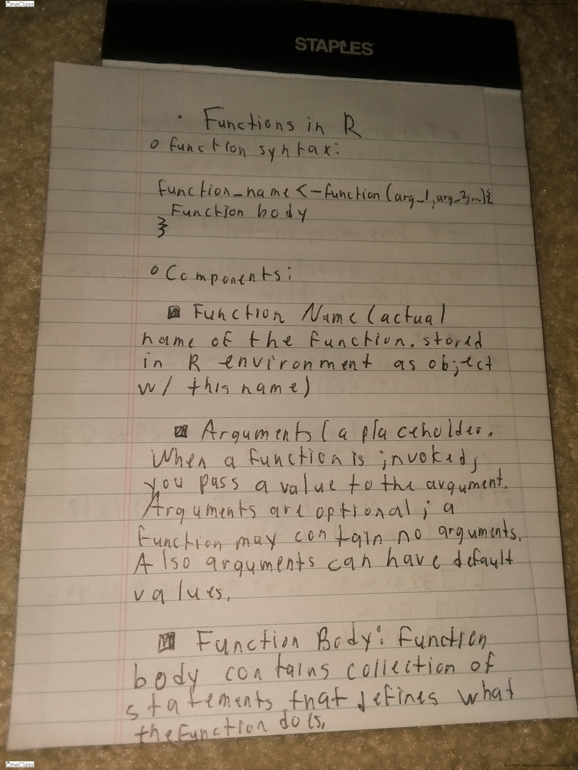 OneClass
STAPLES
• Functions in R
o function syntax:
function_name <-function(arg_1,arg_2,...){
Function body
}
o Components:
Function Name (actual
name of the function. stored
in R environment as object
w/ this name)
Arguments (a placeholder.
When a function is invoked,
you pass a value to the argument.
Arguments are optional; a
function may contain no arguments.
Also arguments can have default
values.
Function Body: Function
body contains collection of
statements that defines what
the function does.
OneClass